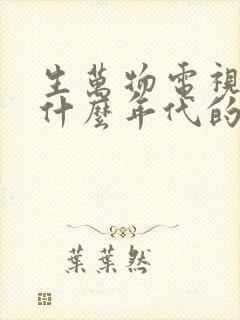 生萬物電視
什麼年代的
葉葉然